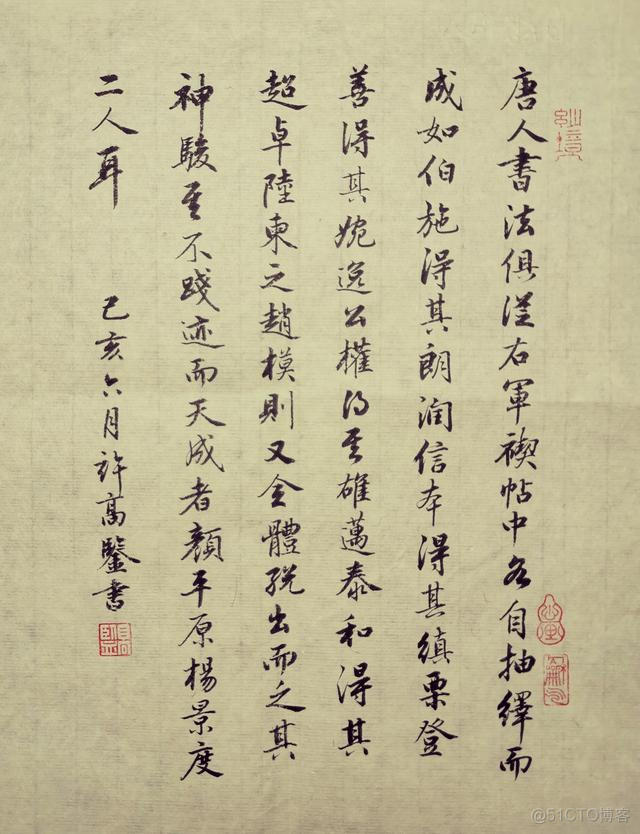 唐人書法俱從右軍禊帖中各自抽繹而
成如伯施得其朗潤信本得其縝栗登
善得其婉逸公權得其雄邁泰和得其
超卓陸東之趙模則又全體脫出而乏其
神駿其不踐迹而天成者顏平原楊景度
二人耳
己亥六月許高鑒書
@51CTO博客